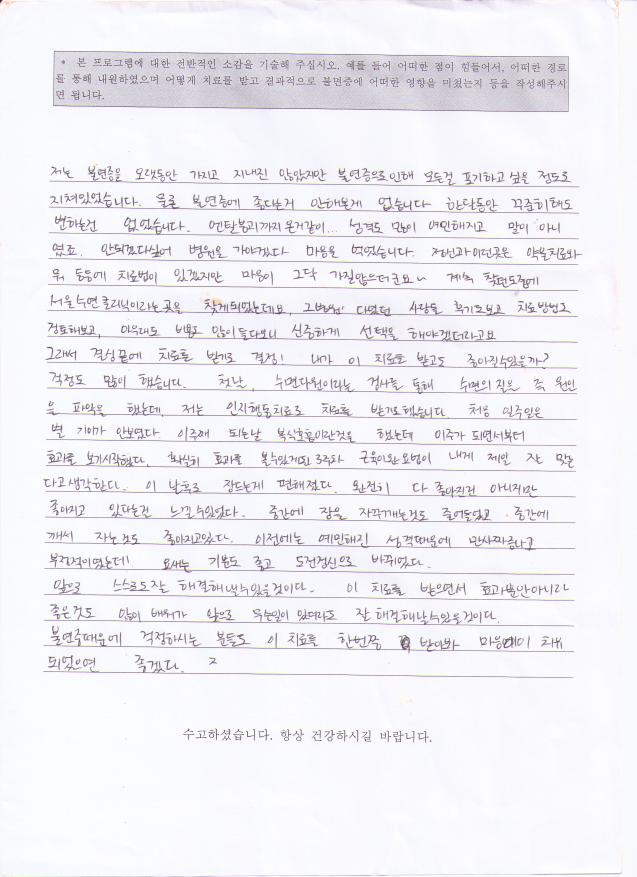 * 본 프로그램에 대한 전반적인 소감을 기술해 주십시오. 예를 들어 어떠한 점이 힘들어서, 어떠한 경로
를 통해 내원하였으며 어떻게 치료를 받고 결과적으로 불면증에 어떠한 영향을 미쳤는지 등을 작성해주시
면 됩니다.
저는 불면증을 오랫동안 가지고 지내진 않았지만 불면증으로 인해 모든걸 포기하고 싶을 정도로
지쳐있었습니다. 물론 불면증에 좋다는거 안해본게 없습니다 한달동안 꾸준히해도
변하는건 없었습니다. 멘탈붕괴까지 온거같이... 성격도 많이 예민해지고 말이 아니
였죠. 안되겠다싶어 병원을 가야겠다 마음을 먹었습니다. 정신과이런곳은 약물치료와
뭐 등등에 치료법이 있겠지만 마음이 그닥 가질않으더군요~ 계속
서울수면클리닉이라는 곳을 찾게되었는데요, 다녔던 사람들 후기도보고 치료방법도
정보해보고, 아무래도 비용도 많이들다보니 신중하게 선택을 해야겠더라고요
그래서 결심끝에 치료를 받기로 결정! 내가 이 치료를 받고도 좋아질수있을까?
걱정도 많이 했습니다. 첫날, 수면다원이라는 검사를 통해 수면의 질은 즉 원인
을 파악을 했는데, 저는 인지행동치료로 치료를 받기로했습니다. 처음 일주일은
별 기미가 안보였다. 이주째 되는날 복식호흡이란것을 했는데 이주가 되면서부터
효과를 보기시작했다. 확실히 효과를 볼수있게된 3주차 근육이완요법이 내게 제일 잘 맞는
다고 생각한다. 이 날후로 잠드는게 편해졌다. 완전히 다 좋아진건 아니지만
좋아지고 있다는건 느낄수있었다. 중간에 잠을 자꾸깨는것도 줄어들었고 중간에
깨서 자는것도 좋아지고있다. 이전에는 예민해진 성격때문에 만사짜증나고
부정적이였는데! 요새는 기분도 좋고 도전정신으로 바뀌었다.
앞으로 스스로도 잘 해결해낼수있을것이다. 이 치료를 받으면서 효과뿐만아니라
좋은것도 많이 배워가 앞으로 무슨일이 있더라도 잘 해결해낼수있을것이다.
불면증때문에 걱정하시는 분들도 이 치료를 한번쯤 받아봐 마음 치유
되었으면 좋겠다.
수고하셨습니다. 항상 건강하시길 바랍니다.